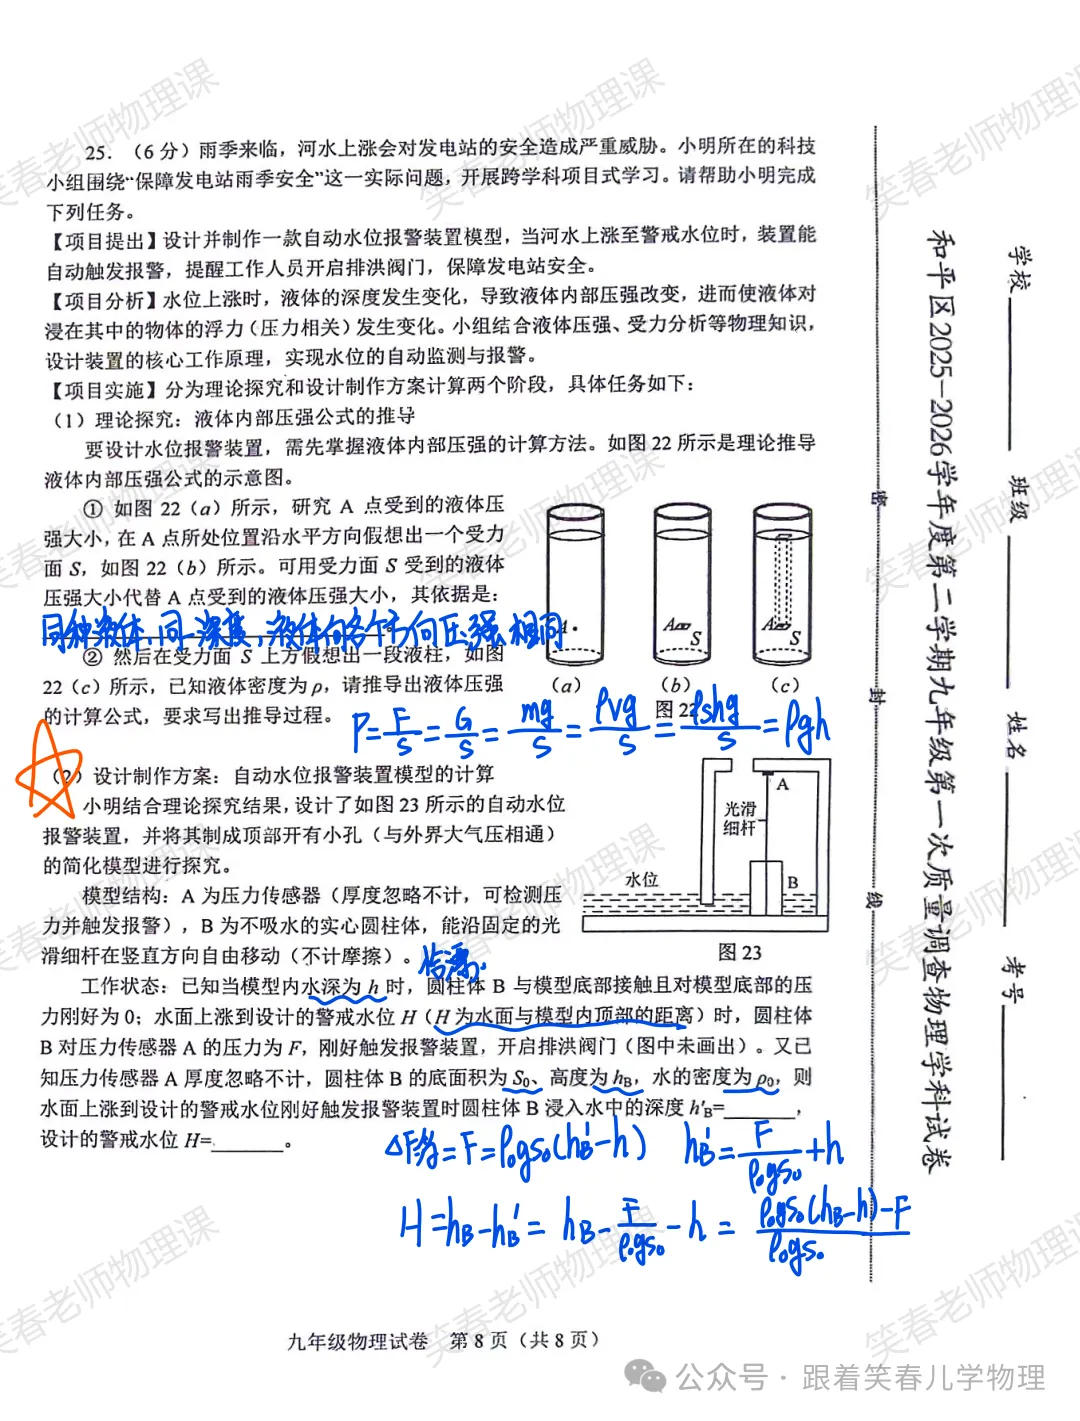 25.（6 分）雨季来临，河水上涨会对发电站的安全造成严重威胁。小明所在的科技
小组围绕“保障发电站雨季安全”这一实际问题，开展跨学科项目式学习。请帮助小明完成
下列任务。
【项目提出】设计并制作一款自动水位报警装置模型，当河水上涨至警戒水位时，装置能
自动触发报警，提醒工作人员开启排洪阀门，保障发电站安全。
【项目分析】水位上涨时，液体的深度发生变化，导致液体内部压强改变，进而使液体对
浸在其中的物体的浮力（压力相关）发生变化。小组结合液体压强、受力分析等物理知识，
设计装置的核心工作原理，实现水位的自动监测与报警。
【项目实施】分为理论探究和设计制作方案计算两个阶段，具体任务如下：
（1）理论探究：液体内部压强公式的推导
要设计水位报警装置，需先掌握液体内部压强的计算方法。如图 22 所示是理论推导
液体内部压强公式的示意图。
① 如图 22（a）所示，研究 A 点受到的液体压
强大小，在 A 点所处位置沿水平方向假想出一个受力
面 S，如图 22（b）所示。可用受力面 S 受到的液体
压强大小代替 A 点受到的液体压强大小，其依据是：
同种液体，同一深度，液体向各个方向压强相同
② 然后在受力面 S 上方假想出一段液柱，如图
22（c）所示，已知液体密度为 ρ，请推导出液体压强
的计算公式，要求写出推导过程。
A
A S
A S
（a） （b） （c）
图 22
P=F/S=G/S=mg/S=ρVg/S=ρShg/S=ρgh
（2）设计制作方案：自动水位报警装置模型的计算
小明结合理论探究结果，设计了如图 23 所示的自动水位
报警装置，并将其制成顶部开有小孔（与外界大气压相通）
的简化模型进行探究。
模型结构：A 为压力传感器（厚度忽略不计，可检测压
力并触发报警），B 为不吸水的实心圆柱体，能沿固定的光
滑细杆在竖直方向自由移动（不计摩擦）。
A
光滑
细杆
水位
B
图 23
恰漂
工作状态：已知当模型内水深为 h 时，圆柱体 B 与模型底部接触且对模型底部的压
力刚好为 0；水面上涨到设计的警戒水位 H（H 为水面与模型内顶部的距离）时，圆柱体
B 对压力传感器 A 的压力为 F，刚好触发报警装置，开启排洪阀门（图中未画出）。又已
知压力传感器 A 厚度忽略不计，圆柱体 B 的底面积为 S₀、高度为 hB，水的密度为 ρ₀，则
水面上涨到设计的警戒水位刚好触发报警装置时圆柱体 B 浸入水中的深度 h′B=________，
设计的警戒水位 H=________。
ΔF浮=F=ρ₀gS₀(hB′-h) hB′=F/ρ₀gS₀+h
H=hB-hB′=hB-F/ρ₀gS₀-h=ρ₀gS₀(hB-h)-F/ρ₀gS₀
九年级物理试卷 第 8 页（共 8 页）
学校
班级
姓名
考号
和平区2025-2026学年度第二学期九年级第一次质量调查物理学科试卷
密
封
线
笑春老师物理课
公众号·跟着笑春儿学物理